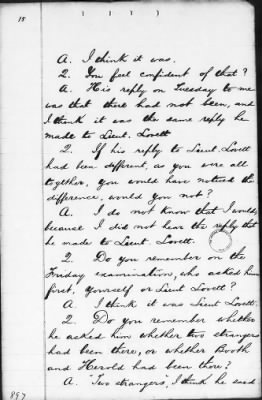 15
A. I think it was.
Q. You feel confident of that?
A. His reply on Tuesday to me
was that there had not been, and
I think it was the same reply he
made to Lieut. Lovett
Q. If his reply to Lieut Lovett
had been different, as you were all
together, you would have noticed the
difference, would you not?
A. I do not know that I would,
because I did not hear the reply that
he made to Lieut Lovett.
Q. Do you remember on the
Friday examination, who asked him
first, yourself or Lieut Lovett?
A. I think it was Lieut Lovett.
Q. Do you remember whether
he asked him whether two strangers
had been there, or whether Booth
and Herold had been there?
A. Two strangers, I think he said
897